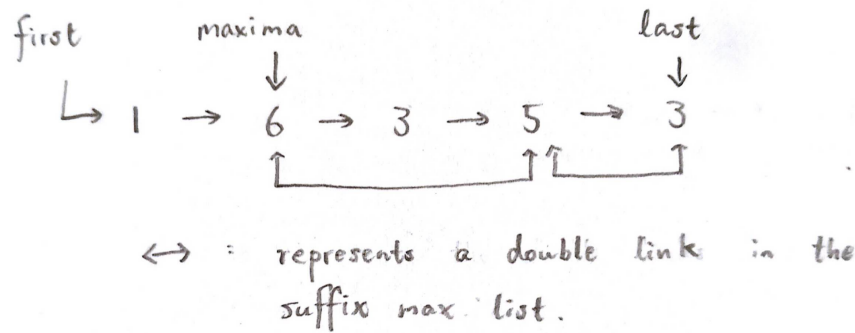 first maxima last
1 → 6 → 3 → 5 → 3
↔ : represents a double link in the
suffix max list.